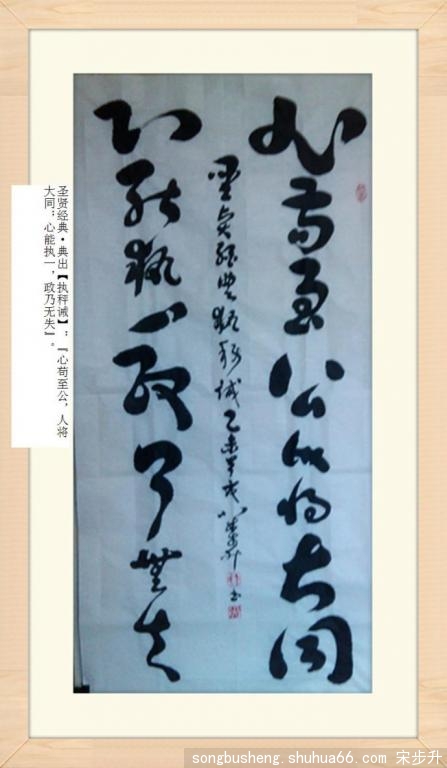 心苟至公人将大同
聖賢經典執秤誡乙未
宋步升
心能執一政乃無失
圣贤经典·典出【执秤诫】;『心苟至公,人将
大同;心能执一,政乃无失』。
songbusheng.shuhua66.com 宋步升